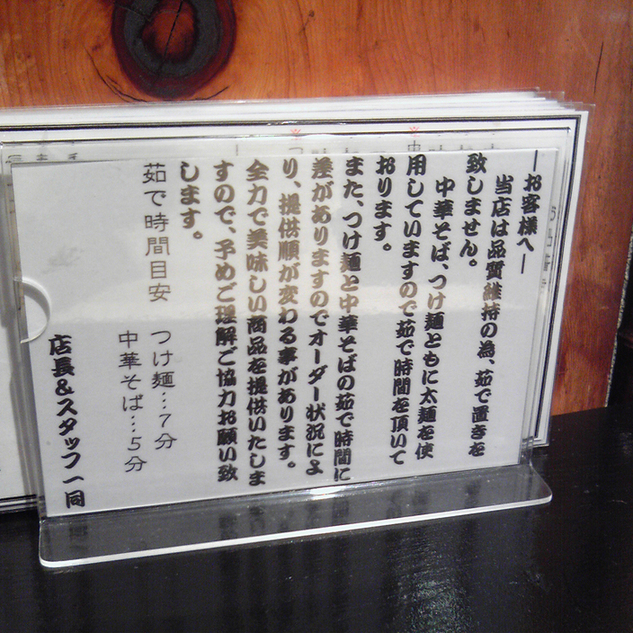 ―お客様へ―
当店は品質維持の為、茹で置きを
致しません。
中華そば、つけ麺ともに太麺を使
用していますので茹で時間を頂いて
おります。
また、つけ麺と中華そばの茹で時間に
差がありますのでオーダー状況によ
り、提供順が変わる事があります。
全力で美味しい商品を提供いたしま
すので、予めご理解ご協力お願い致
します。
茹で時間目安 つけ麺…7分
中華そば…5分
店長&スタッフ一同